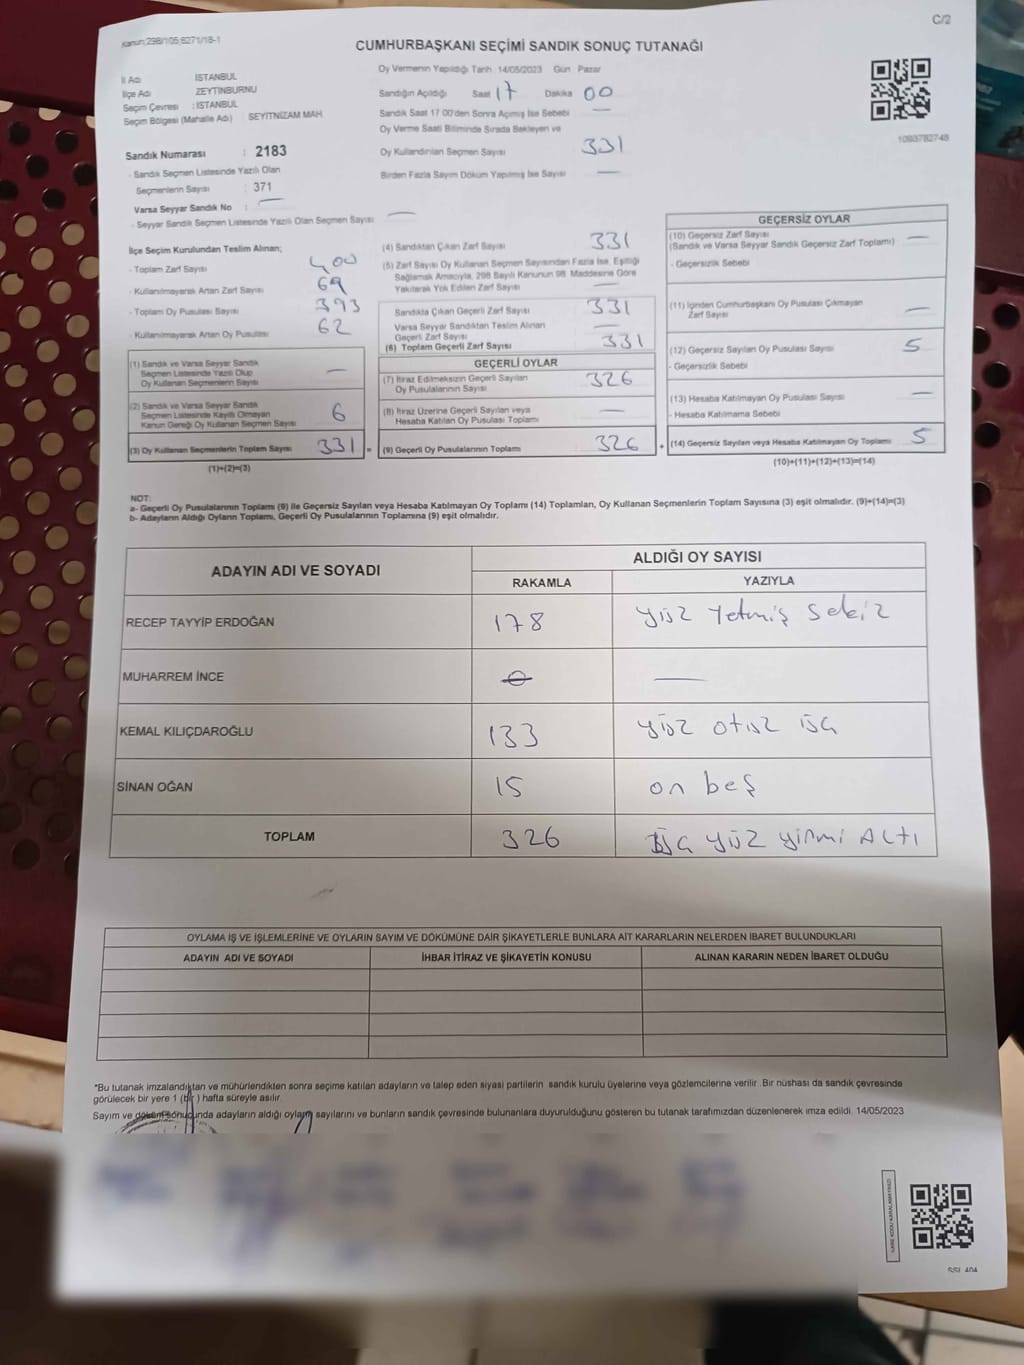 C/2
Kanun:298/105;6271/18-1
CUMHURBAŞKANI SEÇİMİ SANDIK SONUÇ TUTANAĞI
İl Adı : İSTANBUL
İlçe Adı ZEYTİNBURNU
Seçim Çevresi : İSTANBUL
Seçim Bölgesi (Mahalle Adı) : SEYİTNİZAM MAH.
Sandık Numarası : 2183
- Sandık Seçmen Listesinde Yazılı Olan
Seçmenlerin Sayısı : 371
Varsa Seyyar Sandık No : —
- Seyyar Sandık Seçmen Listesinde Yazılı Olan Seçmen Sayısı : —
Oy Vermenin Yapıldığı Tarih :14/05/2023 Gün : Pazar
Sandığın Açıldığı Saat 17 Dakika 00
Sandık Saat 17.00'den Sonra Açımış İse Sebebi —
Oy Verme Saati Bitiminde Sırada Bekleyen ve
Oy Kullandırılan Seçmen Sayısı 331
Birden Fazla Sayım Döküm Yapılmış İse Sayısı —
1093782748
İlçe Seçim Kurulundan Teslim Alınan;
- Toplam Zarf Sayısı 400
- Kullanılmayarak Artan Zarf Sayısı 69
- Toplam Oy Pusulası Sayısı 393
- Kullanılmayarak Artan Oy Pusulası 62
(1) Sandık ve Varsa Seyyar Sandık
Seçmen Listesinde Yazılı Olup
Oy Kullanan Seçmenlerin Sayısı —
(2) Sandık ve Varsa Seyyar Sandık
Seçmen Listesinde Kayıtlı Olmayan
Kanun Gereği Oy Kullanan Seçmen Sayısı 6
(3) Oy Kullanan Seçmenlerin Toplam Sayısı 331 =
(1)+(2)=(3)
(4) Sandıktan Çıkan Zarf Sayısı 331
(5) Zarf Sayısı Oy Kullanan Seçmen Sayısından Fazla İse, Eşitliği
Sağlamak Amacıyla, 298 Sayılı Kanunun 98. Maddesine Göre
Yakılarak Yok Edilen Zarf Sayısı —
Sandıkta Çıkan Geçerli Zarf Sayısı 331
Varsa Seyyar Sandıktan Teslim Alınan
Geçerli Zarf Sayısı —
(6) Toplam Geçerli Zarf Sayısı 331
GEÇERLİ OYLAR
(7) İtiraz Edilmeksizin Geçerli Sayılan
Oy Pusulalarının Sayısı 326
(8) İtiraz Üzerine Geçerli Sayılan veya
Hesaba Katılan Oy Pusulası Toplamı —
(9) Geçerli Oy Pusulalarının Toplamı 326 +
GEÇERSİZ OYLAR
(10) Geçersiz Zarf Sayısı
(Sandık ve Varsa Seyyar Sandık Geçersiz Zarf Toplamı) —
- Geçersizlik Sebebi
(11) İçinden Cumhurbaşkanı Oy Pusulası Çıkmayan
Zarf Sayısı —
(12) Geçersiz Sayılan Oy Pusulası Sayısı 5
- Geçersizlik Sebebi
(13) Hesaba Katılmayan Oy Pusulası Sayısı —
- Hesaba Katılmama Sebebi
(14) Geçersiz Sayılan veya Hesaba Katılmayan Oy Toplamı 5
(10)+(11)+(12)+(13)=(14)
NOT:
a- Geçerli Oy Pusulalarının Toplamı (9) ile Geçersiz Sayılan veya Hesaba Katılmayan Oy Toplamı (14) Toplamları, Oy Kullanan Seçmenlerin Toplam Sayısına (3) eşit olmalıdır. (9)+(14)=(3)
b- Adayların Aldığı Oyların Toplamı, Geçerli Oy Pusulalarının Toplamına (9) eşit olmalıdır.
ADAYIN ADI VE SOYADI ALDIĞI OY SAYISI
RAKAMLA YAZIYLA
RECEP TAYYİP ERDOĞAN 178 yüz yetmiş sekiz
MUHARREM İNCE 0 —
KEMAL KILIÇDAROĞLU 133 yüz otuz üç
SİNAN OĞAN 15 on beş
TOPLAM 326 üç yüz yirmi ALTI
OYLAMA İŞ VE İŞLEMLERİNE VE OYLARIN SAYIM VE DÖKÜMÜNE DAİR ŞİKAYETLERLE BUNLARA AİT KARARLARIN NELERDEN İBARET BULUNDUKLARI
ADAYIN ADI VE SOYADI İHBAR İTİRAZ VE ŞİKAYETİN KONUSU ALINAN KARARIN NEDEN İBARET OLDUĞU
*Bu tutanak imzalandıktan ve mühürlendikten sonra seçime katılan adayların ve talep eden siyasi partilerin sandık kurulu üyelerine veya gözlemcilerine verilir. Bir nüshası da sandık çevresinde
görülecek bir yere 1 (bir) hafta süreyle asılır.
Sayım ve döküm sonucunda adayların aldığı oyların sayılarını ve bunların sandık çevresinde bulunanlara duyurulduğunu gösteren bu tutanak tarafımızdan düzenlenerek imza edildi. 14/05/2023